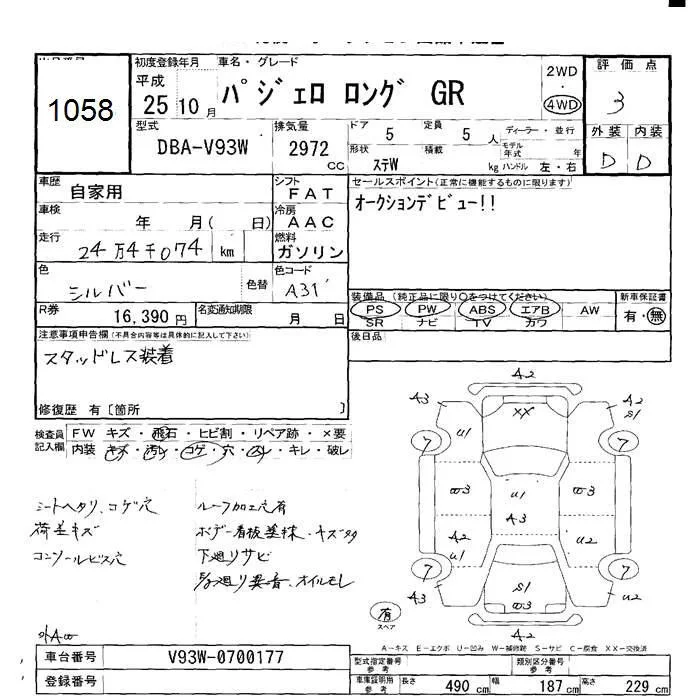 1058
初度登録年月 車名・グレード
平成 25 年 10 月 パジェロ ロング GR
2WD ・ 4WD
評価点
3
外装 内装
D D
型式 DBA-V93W
排気量 2972 CC
ドア 5 定員 5 人
形状 ステW 積載 kg
ディーラー・並行
モデル年式 年
ハンドル 左・右
車歴 自家用
シフト FAT
車検 年 月( 日)
冷房 AAC
走行 24万4千074 km
燃料 ガソリン
色 シルバー 色替
色コード A31
R券 16,390 円
名変通知期限 月 日
セールスポイント(正常に機能するものに限ります)
オークションデビュー!!
装備品 (純正品に限り○をつけてください)
PS PW ABS エアB AW
SR ナビ TV カワ
新車保証書
有・無
後日品
注意事項申告欄(不具合内容等は具体的に記入して下さい)
スタッドレス装着
修復歴 有〔箇所 〕
検査員記入欄
FW キズ・飛石・ヒビ割・リペア跡・×要
内装 キズ・汚レ・コゲ・穴・ハレ・キレ・破レ
シートヘタリ、コゲ穴
荷差キズ
コンソールビス穴
ルーフ加工穴有
ボデー看板塗抹・キズタタ
下廻リサビ
オイルモレ
外A∞
A2
A3 XX A2 S1
U1
7 7
ω3 U1 ω3
A3
A2 U1 U2
7 7
A3 S1 ω3 U2
A2
有
スペア
A-キズ E-エクボ U-凹み W-補修跡 S-サビ C-腐食 XX-交換済
車台番号 V93W-0700177
登録番号
型式指定番号 参考
類別区分番号 参考
車庫証明用 参考 長さ 490 cm 幅 187 cm 高さ 229 cm